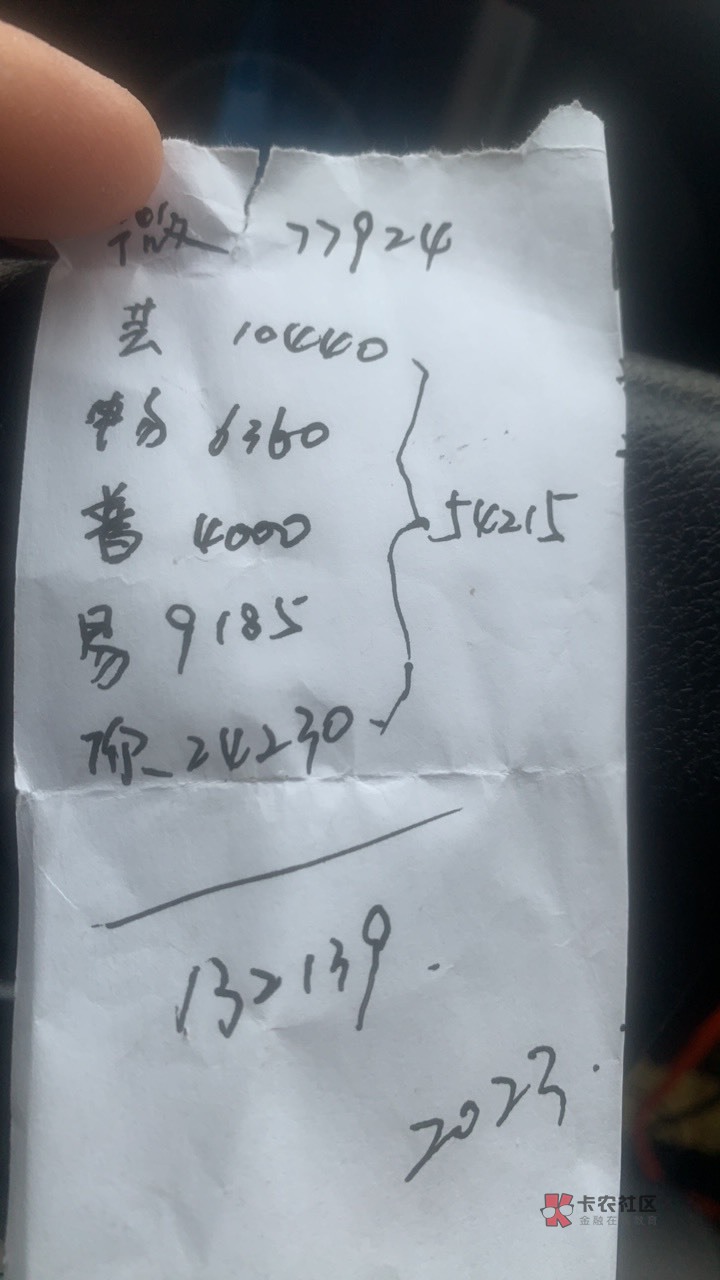 微 77924
芸 10440
畅 6360
普 4000
易 9185
你 24230
54215
132139.
2023.
卡农社区
金融在 教育